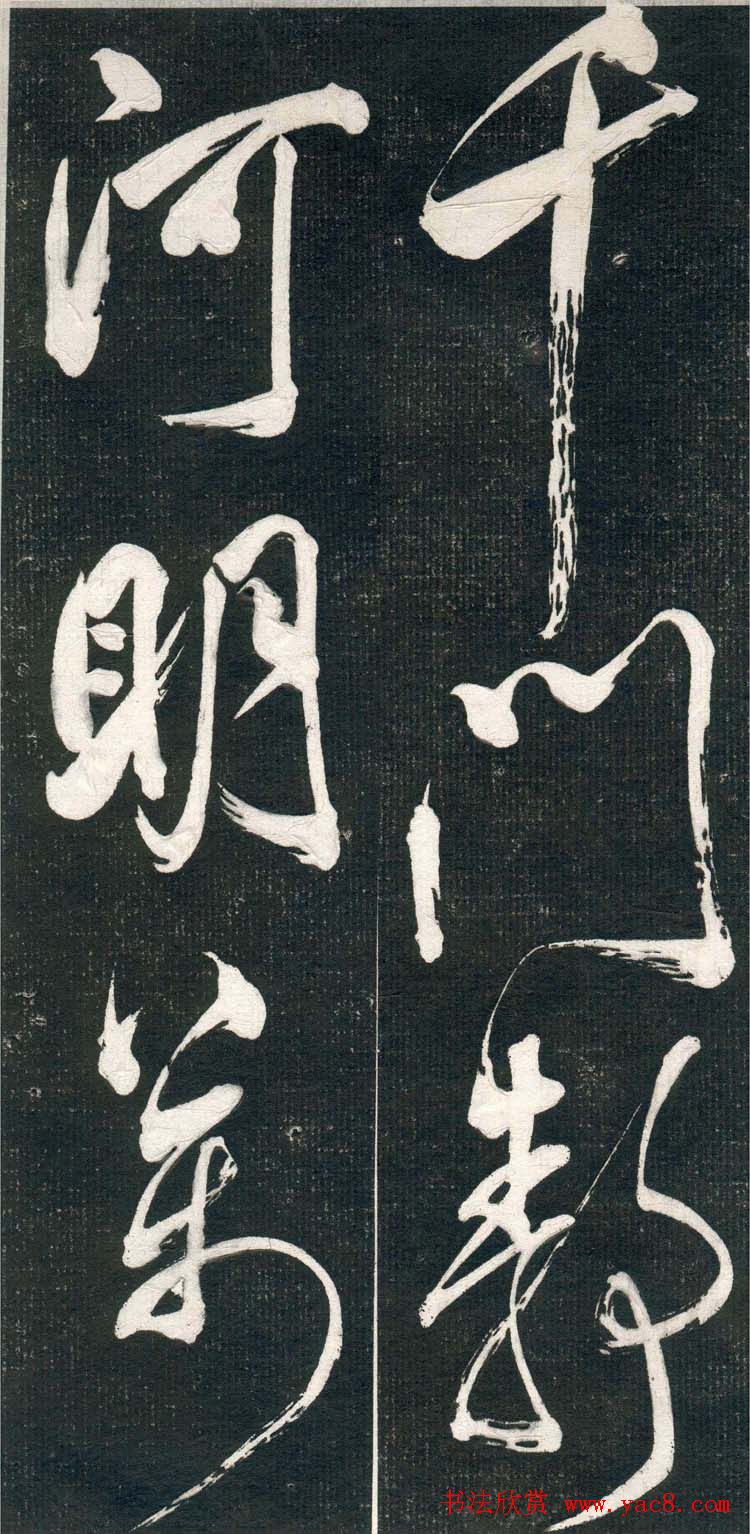 千门静
河明万
书法欣赏 www.yac8.com